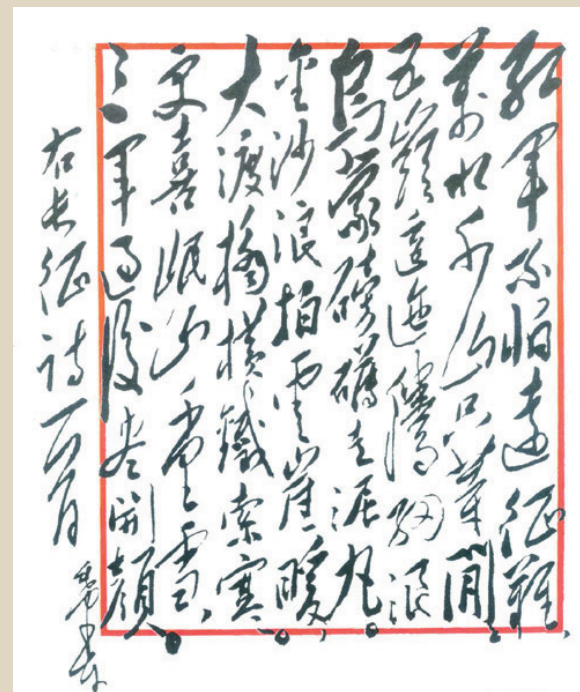 红军不怕远征难
萬水千山只等閒
五嶺逶迤騰細浪
烏蒙磅礴走泥丸
金沙浪拍雲崖暖
大渡橋横鐵索寒
更喜岷山千里雪
三军過後尽開顔
右长征詩一首